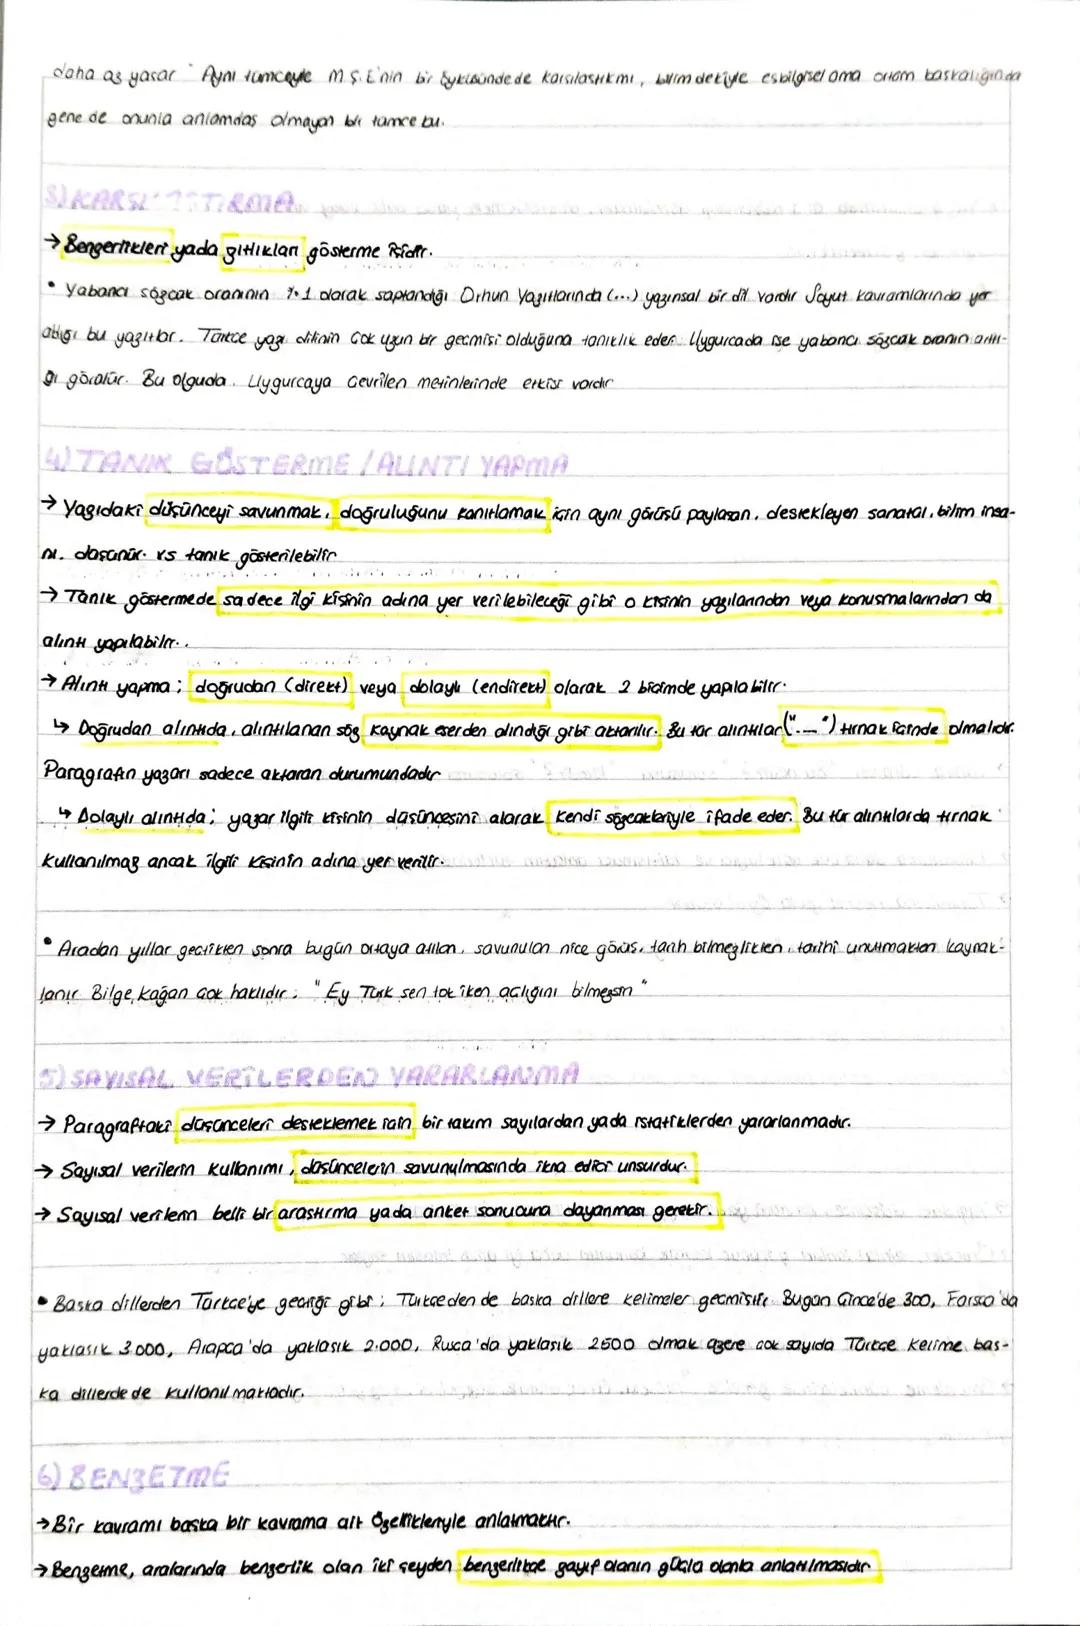 daha az yaşar" Aynı tümceyle M.Ş.E'nin bir öyküsünde de karşılaştık mı, bilimdekiyle eşbilgisel ama ortam başkalığında
gene de onunla anlamdaş olmayan bir tümce bu.
3) KARŞILAŞTIRMA
→ Benzerlikleri yada zıtlıkları gösterme işidir.
• Yabancı sözcük oranının %1 olarak saptandığı Orhun Yazıtlarında (...) yazınsal bir dil vardır Soyut kavramlarında yer
aldığı bu yazıtlar. Türkçe yazı dilinin çok uzun bir geçmişi olduğuna tanıklık eder. Uygurcada ise yabancı sözcük oranın arttı-
ğı görülür. Bu olguda. Uygurcaya çevrilen metinlerinde etkisi vardır
4) TANIK GÖSTERME / ALINTI YAPMA
→ Yazıdaki düşünceyi savunmak, doğruluğunu kanıtlamak için aynı görüşü paylaşan, destekleyen sanatçı, bilim insa-
nı. düşünür. vs tanık gösterilebilir
→ Tanık göstermede sadece ilgi kişinin adına yer verilebileceği gibi o kişinin yazılarından veya konuşmalarından da
alıntı yapılabilir..
→ Alıntı yapma; doğrudan (direkt) veya dolaylı (endirekt) olarak 2 biçimde yapılabilir.
↳ Doğrudan alıntıda, alıntılanan söz kaynak eserden alındığı gibi aktarılır. Bu tür alıntılar ("...") tırnak içinde olmalıdır.
Paragrafın yazarı sadece aktaran durumundadır
↳ Dolaylı alıntıda; yazar ilgili kişinin düşüncesini alarak kendi sözcükleriyle ifade eder. Bu tür alıntılarda tırnak
kullanılmaz ancak ilgili kişinin adına yer verilir.
• Aradan yıllar geçtikten sonra bugün ortaya atılan, savunulan nice görüş, tarih bilmezlikten, tarihi unutmaktan kaynak-
lanır Bilge Kağan çok haklıdır: "Ey Türk sen tok iken açlığını bilmezsin"
5) SAYISAL VERİLERDEN YARARLANMA
→ Paragraftaki düşünceleri desteklemek için bir takım sayılardan yada istatiklerden yararlanmadır.
→ Sayısal verilerin kullanımı, düşüncelerin savunulmasında ikna edici unsurdur.
→ Sayısal verilerin belli bir araştırma yada anket sonucuna dayanması gerekir.
• Başka dillerden Türkçe'ye geçtiği gibi; Türkçeden de başka dillere kelimeler geçmiştir. Bugün Çince'de 300, Farsça'da
yaklaşık 3.000, Arapça'da yaklaşık 2.000, Rusça'da yaklaşık 2500 olmak üzere çok sayıda Türkçe kelime baş-
ka dillerde de kullanılmaktadır.
6) BENZETME
→ Bir kavramı başka bir kavrama ait özellikleriyle anlatmaktır.
→ Benzetme, aralarında benzerlik olan iki şeyden benzerlikçe zayıf olanın güçlü olanla anlatılmasıdır